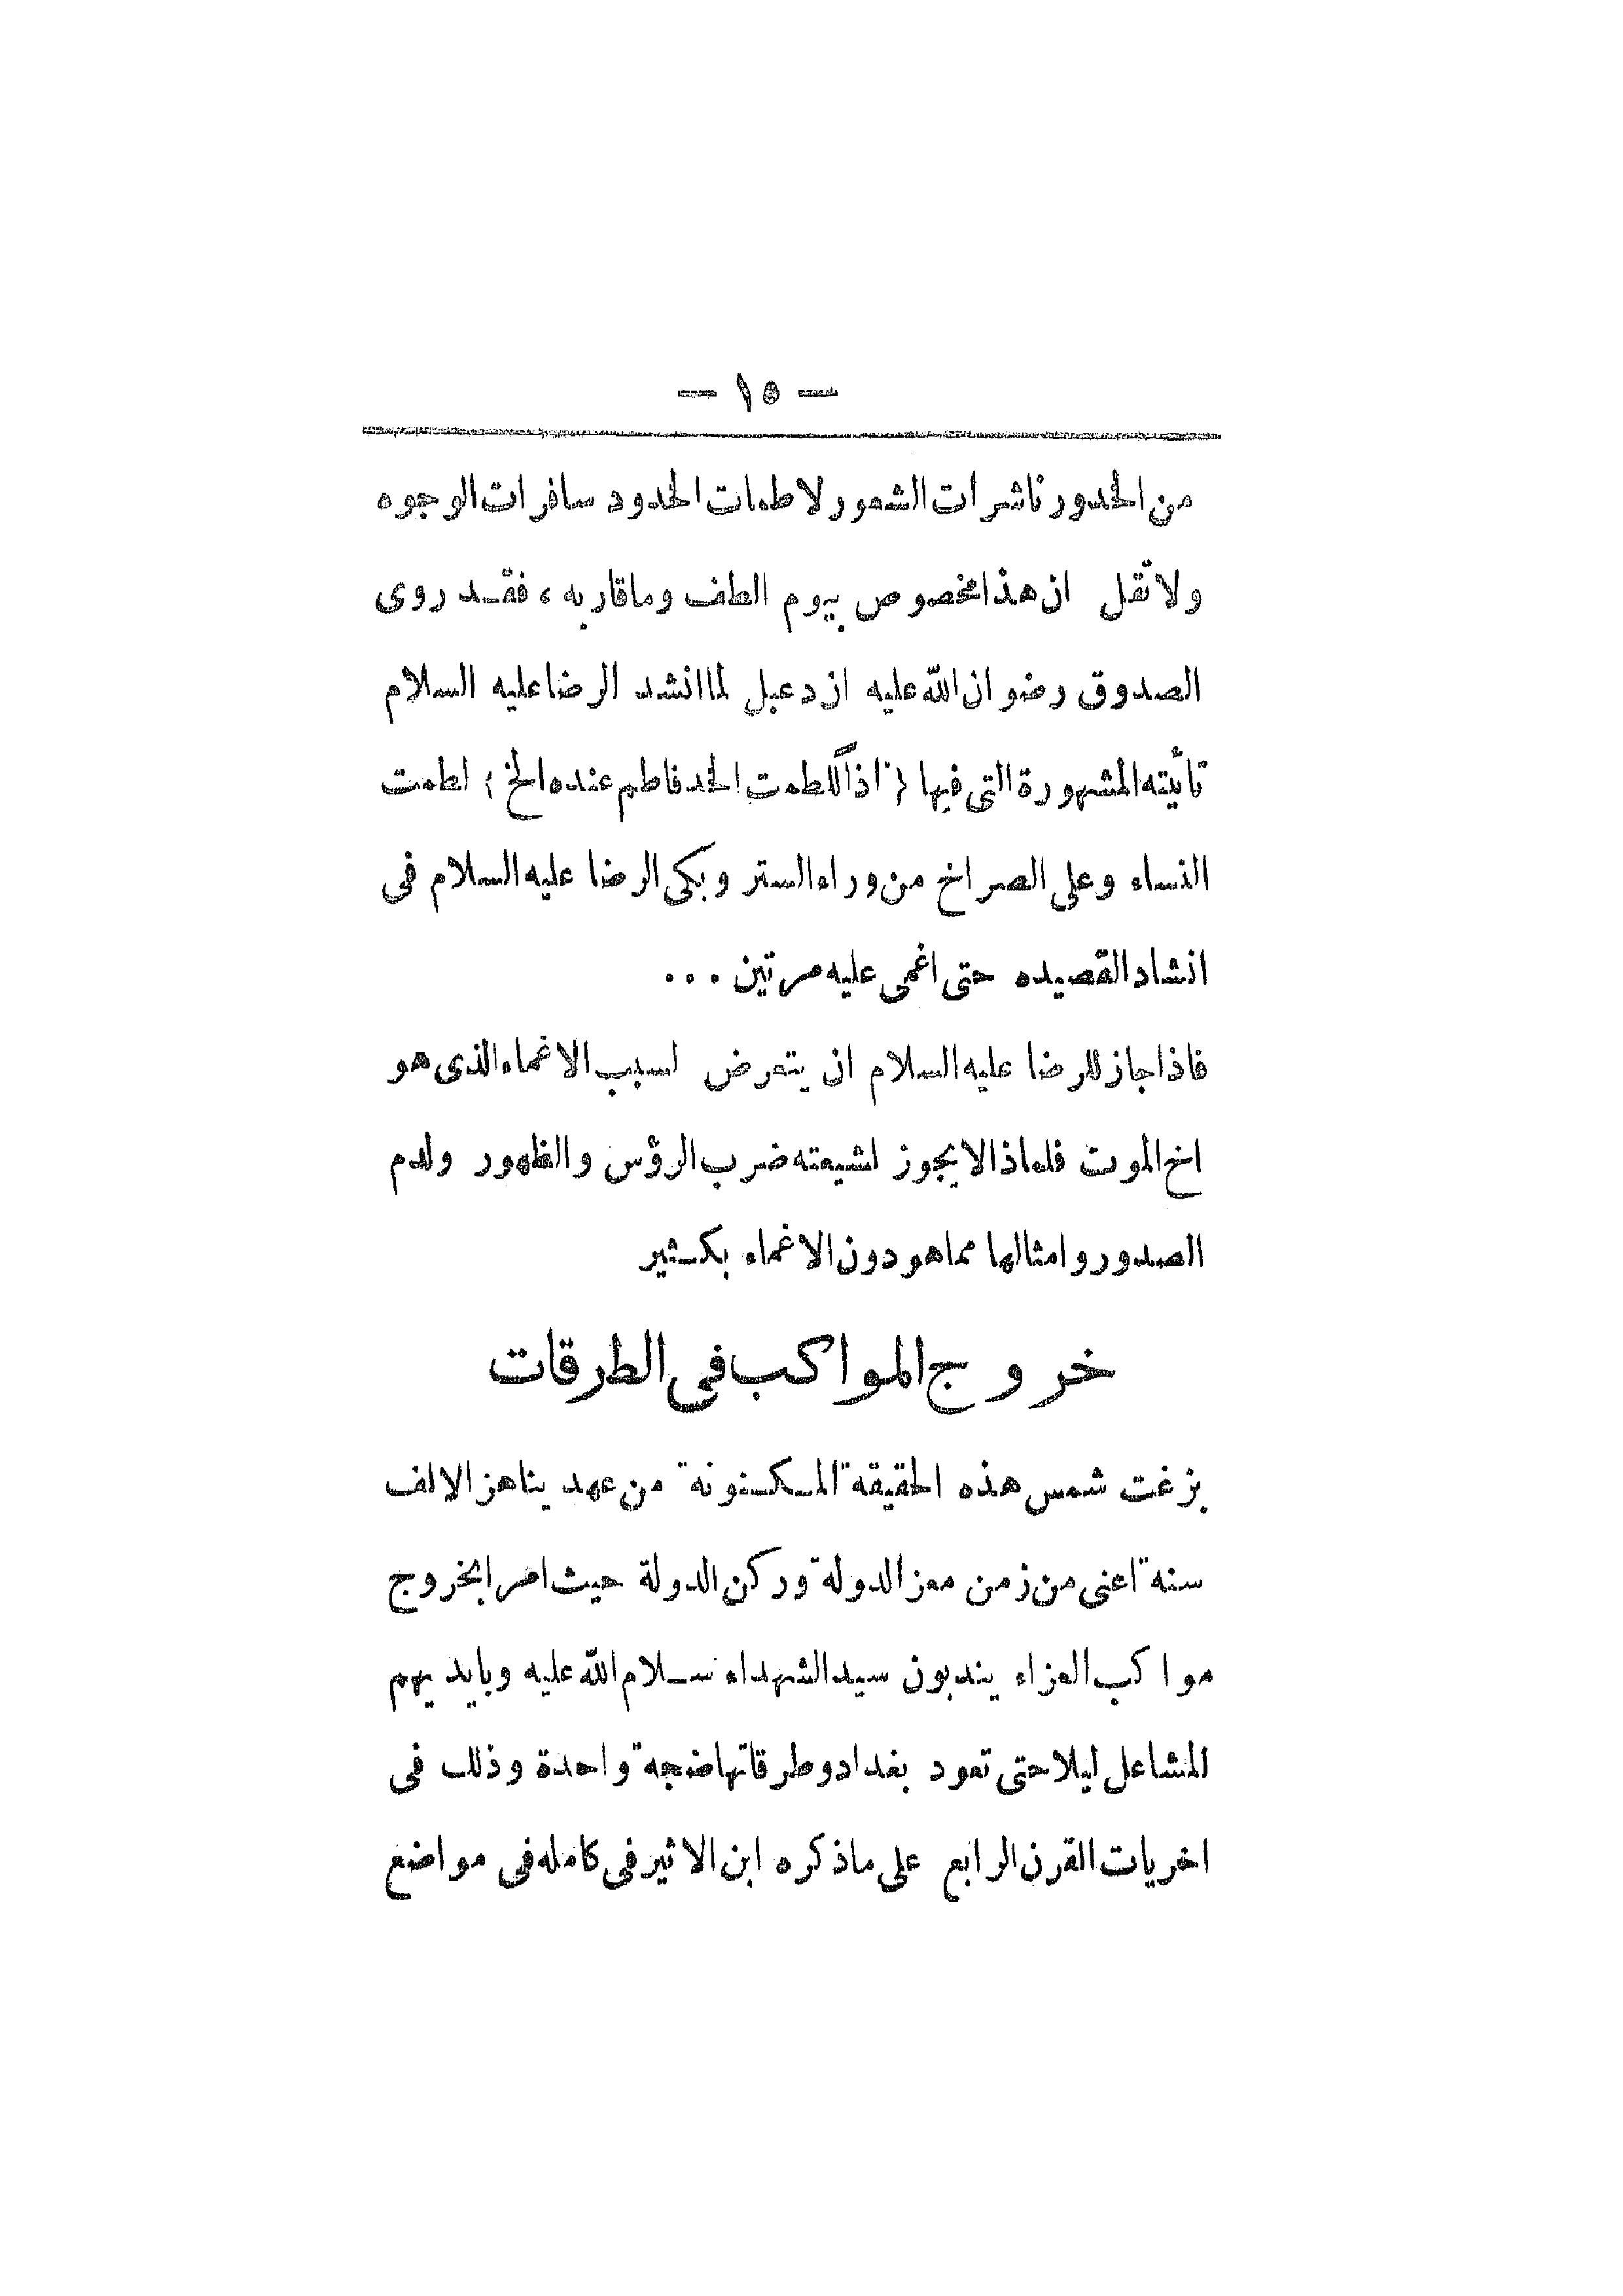 — ١٥ —
من الخدور ناشرات الشعور لاطمات الخدود سافرات الوجوه
ولا تقل ان هذا مخصوص بيوم الطف وما قاربه ، فقد روى
الصدوق رضوان الله عليه ان دعبل لما انشد الرضا عليه السلام
تأئيته المشهورة التي فيها ( اذاً للطمت الخد فاطم عنده الخ ) لطمت
النساء وعلى الصراخ من وراء الستر وبكى الرضا عليه السلام في
انشاد القصيده حتى اغمى عليه مرتين . . .
فاذا جاز للرضا عليه السلام ان يتعرض لسبب الاغماء الذي هو
اخ الموت فلماذا لا يجوز لشيعته ضرب الرؤس والظهور ولدم
الصدور وامثالها مما هو دون الاغماء بكثير
خروج المواكب في الطرقات
بزغت شمس هذه الحقيقة المكنونة من عهد يناهز الالف
سنة اعنى من زمن معز الدولة وركن الدولة حيث امرا بخروج
مواكب العزاء يندبون سيد الشهداء سلام الله عليه وبايديهم
المشاعل ليلا حتى تعود بغداد وطرقاتها ضجة واحدة وذلك في
اخريات القرن الرابع على ما ذكره ابن الاثير في كامله في مواضع